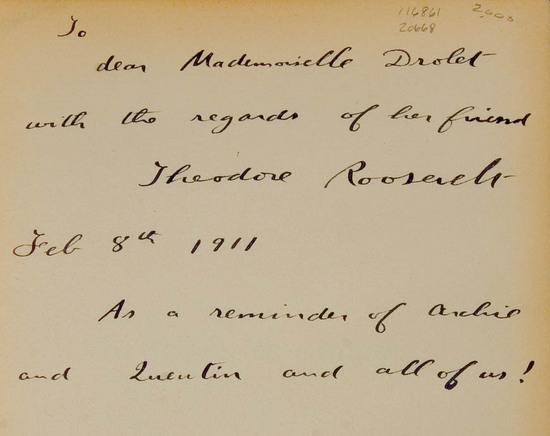 116861 2,000
20668
To
dear Mademoiselle Drolet
with the regards of her friend
Theodore Roosevelt
Feb 8th 1911
As a reminder of Archie
and Quentin and all of us!